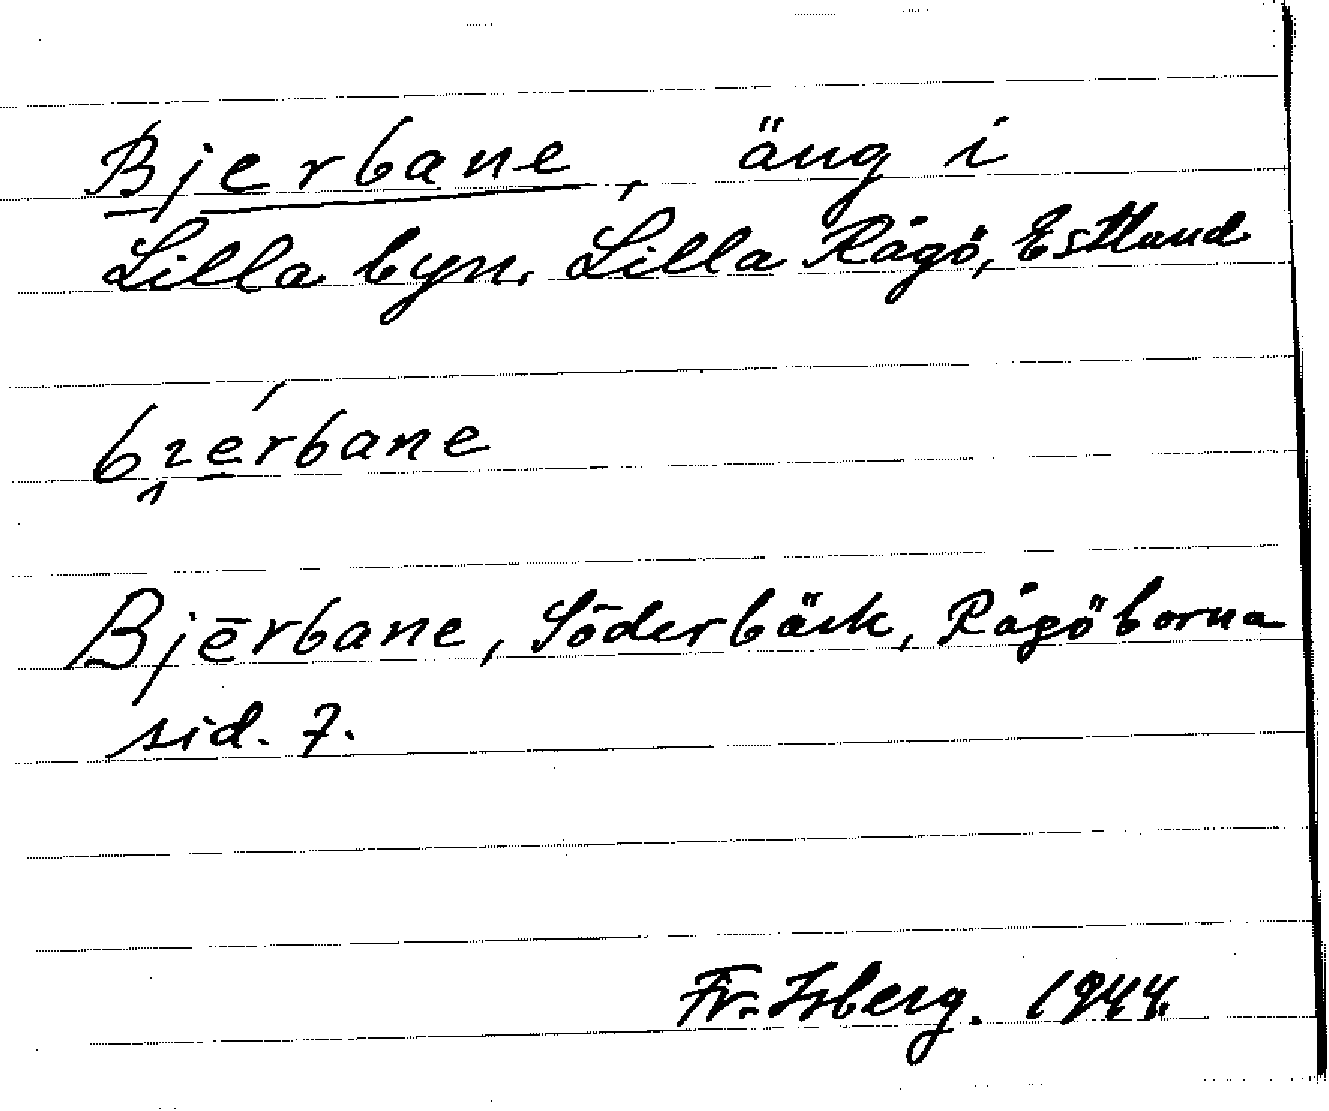 Bjerbane, äng i
Lilla byn. Lilla Rågö, Estland
bɿérbane
Bjērbane, Söderbäck, Rågöborna
sid. 7.
Fr. Isberg. 1944.